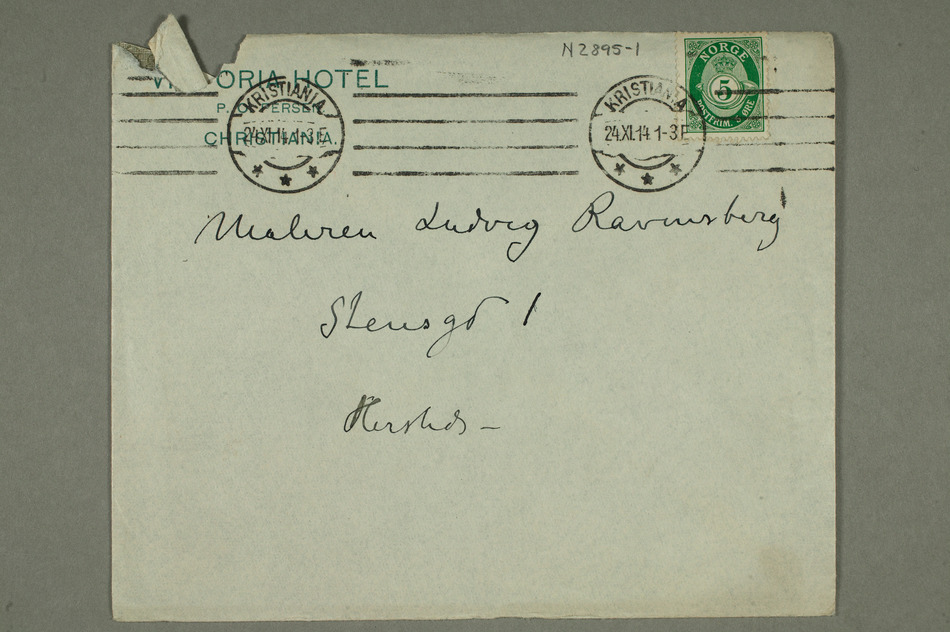 N 2895-1
VICTORIA HOTEL
P. O.
CHRISTIANIA.
KRISTIANIA
24.XI.14 1-3 E
KRISTIANIA
24.XI.14 1-3 E
NORGE
5
POSTFRIM. 5 ØRE
Maleren Ludvig Ravensberg
Stensgd 1
Hersteds